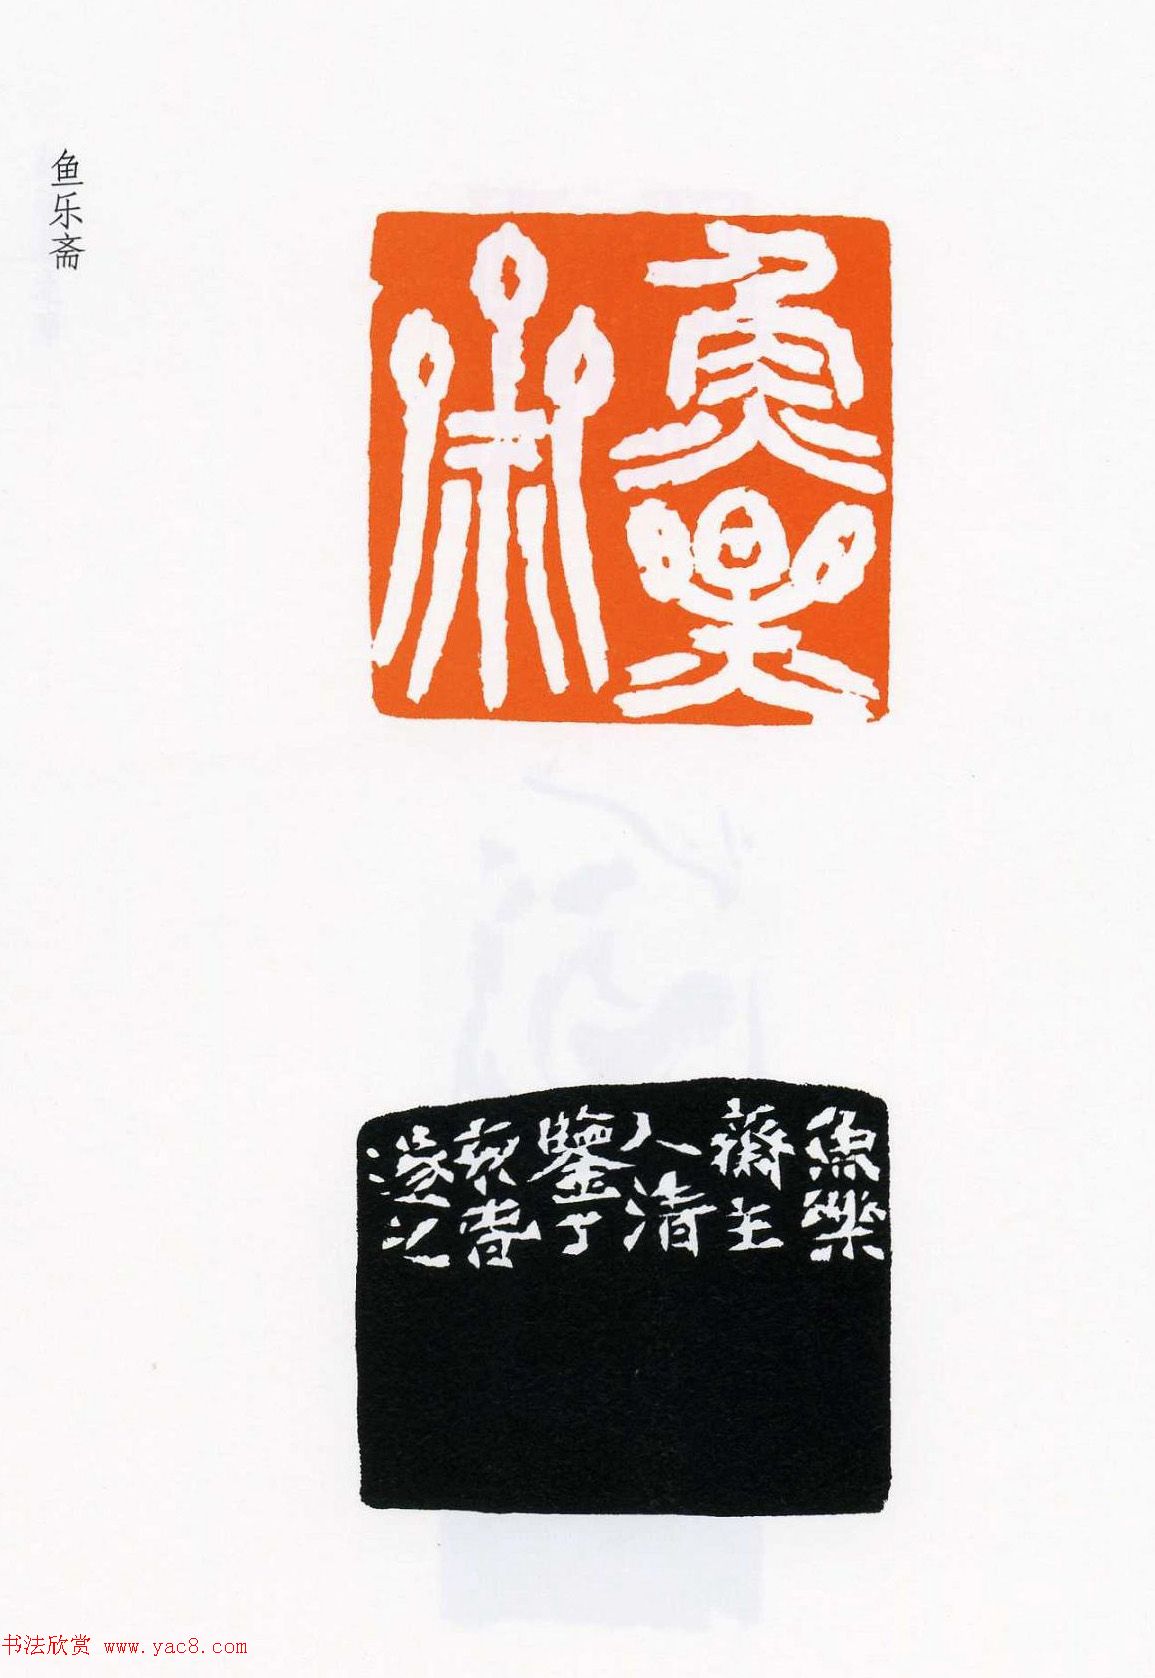 鱼乐斋
魚樂
齋
魚樂
齋主
人清
鑒丁
亥書
遂之
书法欣赏 www.yac8.com